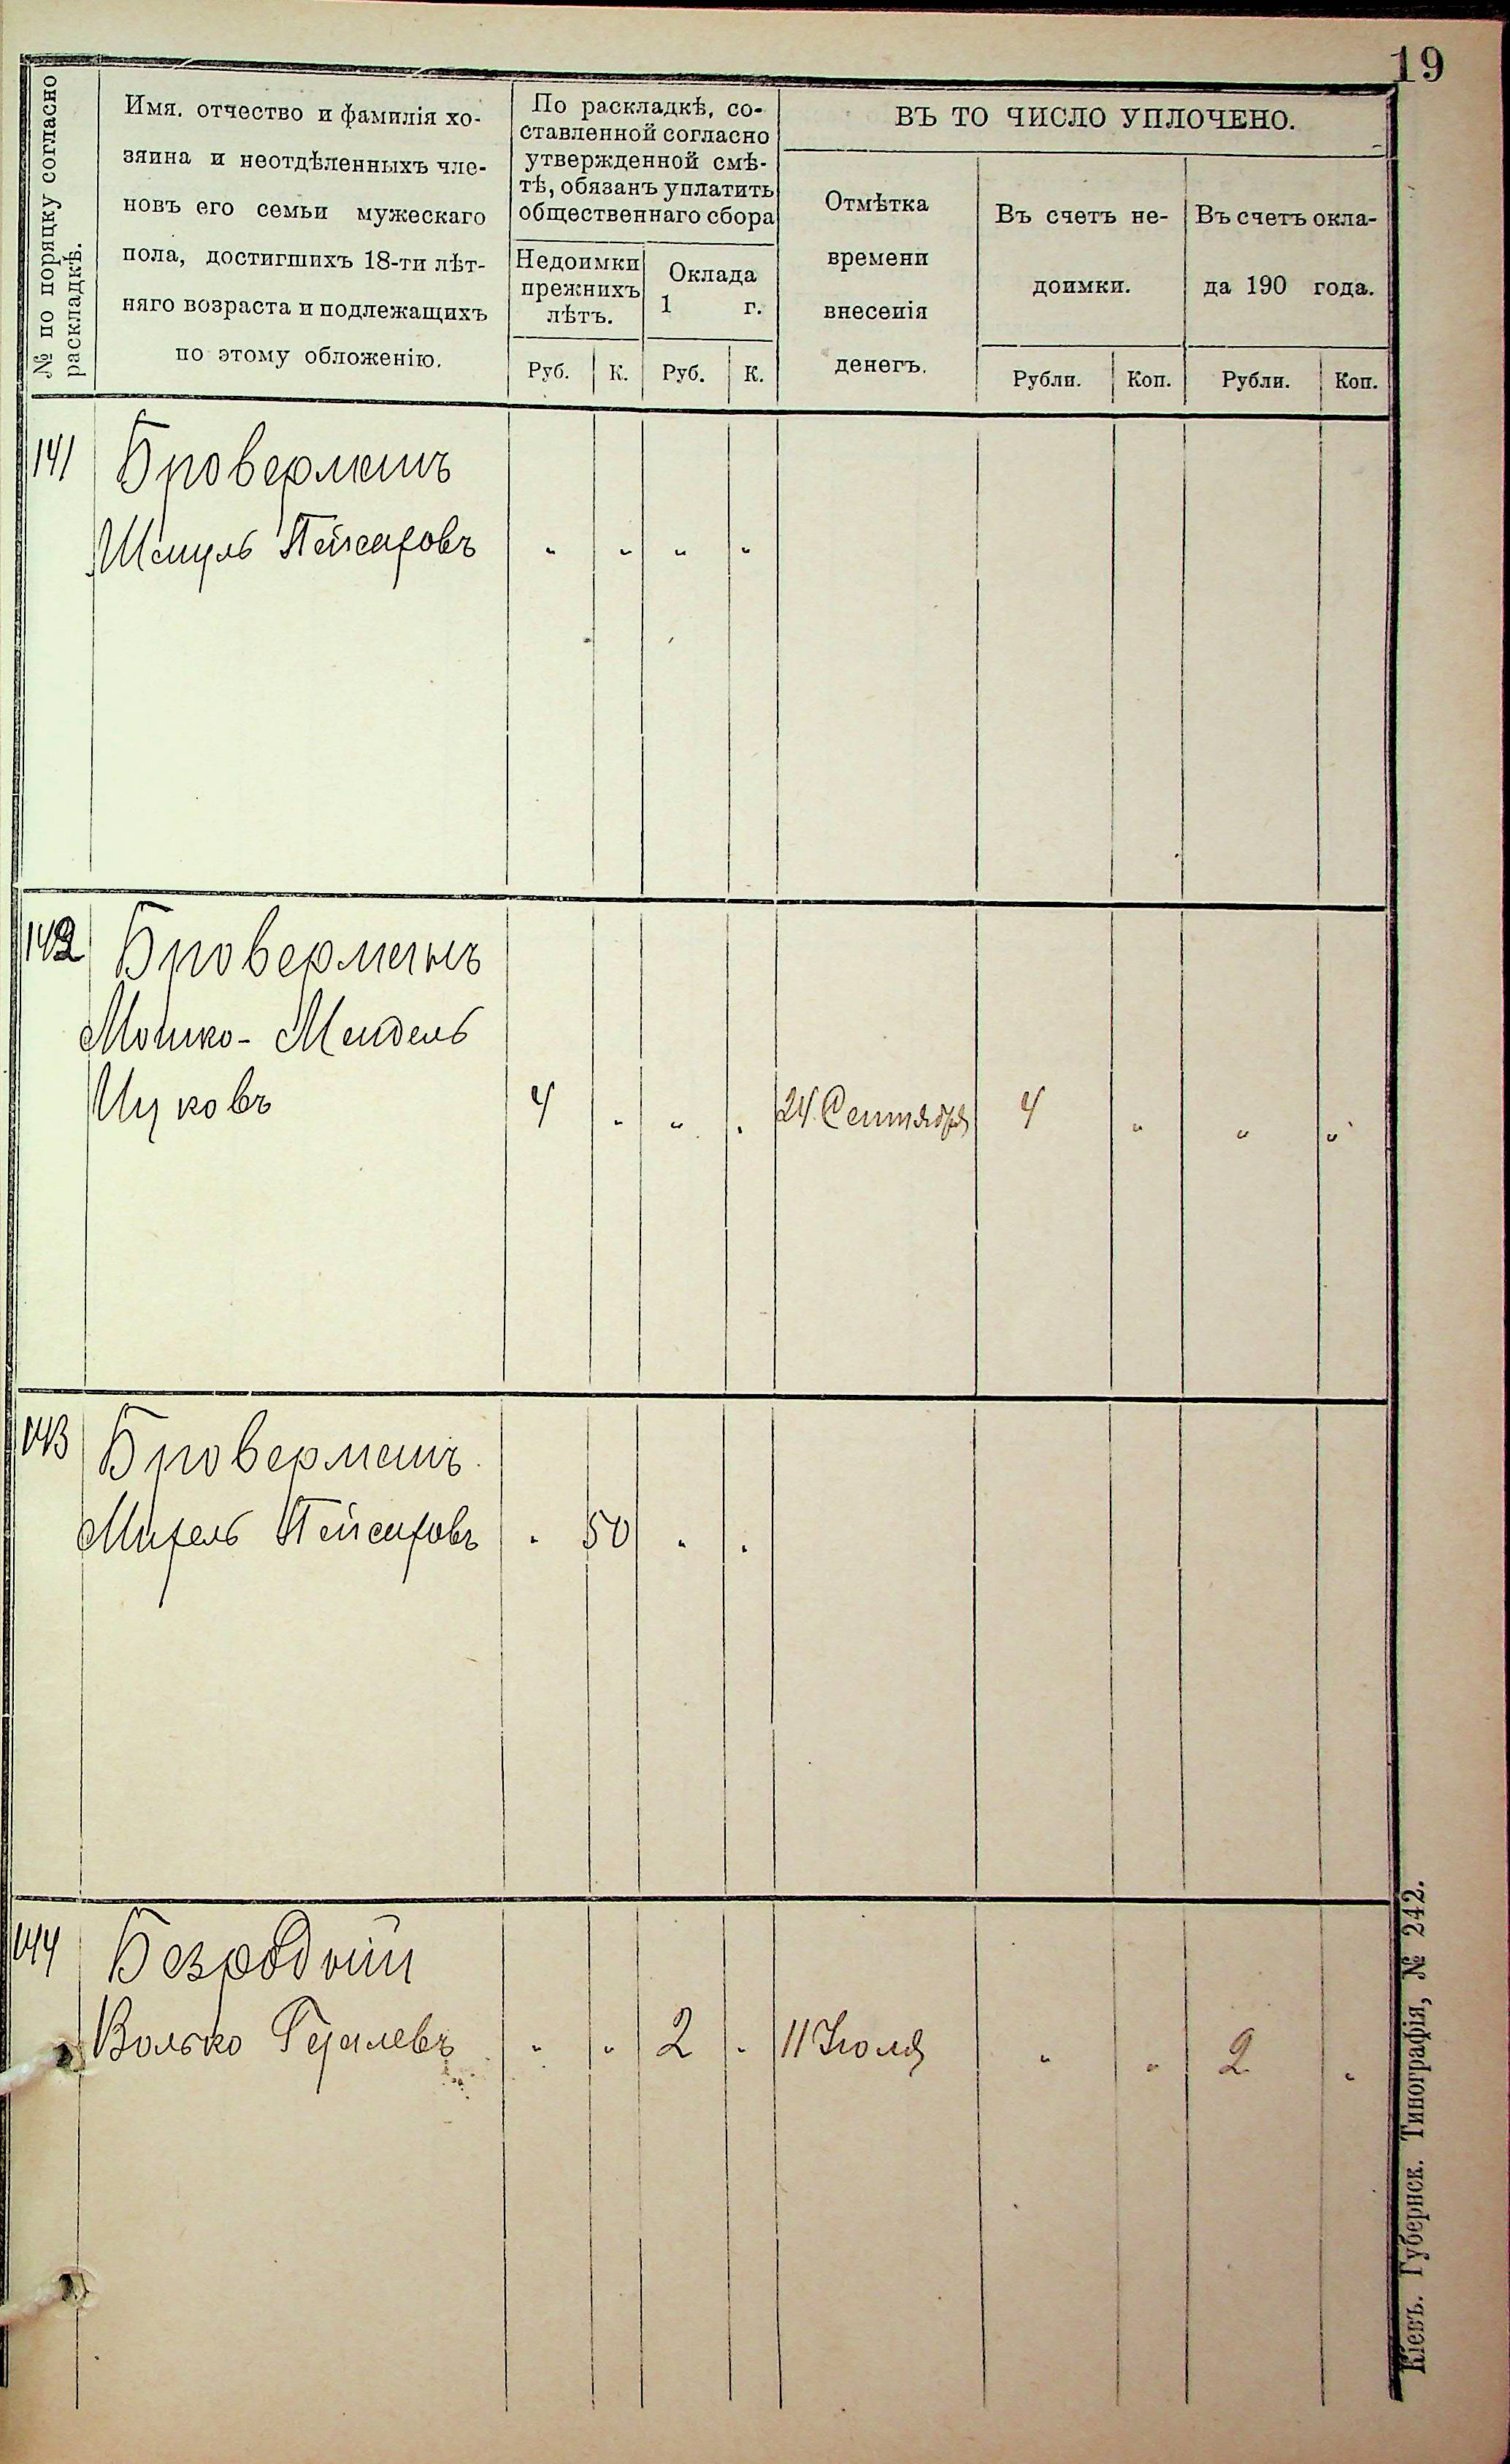 19
№ по порядку согласно
раскладкѣ.
Имя, отчество и фамилія хо-
зяина и неотдѣленныхъ чле-
новъ его семьи мужескаго
пола, достигшихъ 18-ти лѣт-
няго возраста и подлежащихъ
по этому обложенію.
По раскладкѣ, со-
ставленной согласно
утвержденной смѣ-
тѣ, обязанъ уплатить
общественнаго сбора
Недоимки
прежнихъ
лѣтъ.
Оклада
1 г.
Руб. К. Руб. К.
ВЪ ТО ЧИСЛО УПЛОЧЕНО.
Отмѣтка
времени
внесенія
денегъ.
Въ счетъ не-
доимки.
Въ счетъ окла-
да 190 года.
Рубли. Коп. Рубли. Коп.
141 Броверманъ
Шмуль Пейсаховъ " " " "
142 Броверманъ
Мошко-Мендель
Ицковъ 4 " " " 24 Сентября 4 " " "
143 Броверманъ
Михель Пейсаховъ " 50 " "
144 Безродний
Волько Гедалевъ " " 2 " 11 Іюля " " 2 "
Кіевъ. Губернск. Типографія, № 242.